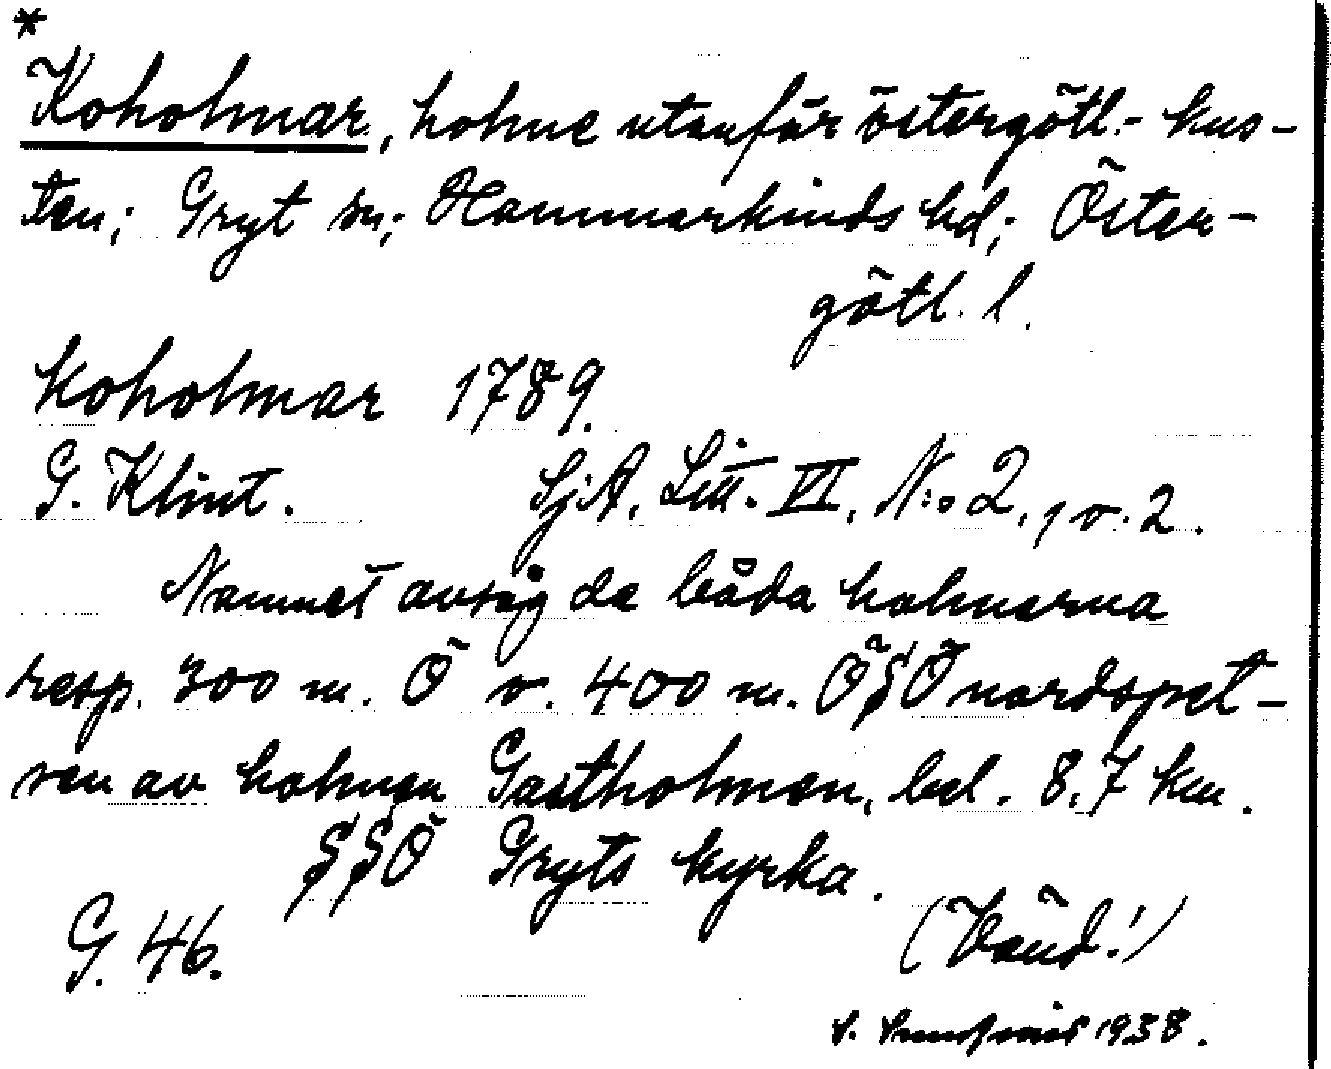 *
Koholmar, holme utanför östergötl.- kus-
ten; Gryt sn; Hammarkinds hd; Öster-
götl. l.
Koholmar 1789.
G. Klint. SjA, Litt. VI, N:o 2, 1 o. 2.
Namnet avsåg de båda holmarna
resp. 300 m. Ö o. 400 m. ÖSÖ nordspet-
sen av holmen Gastholmen, bel. 8,7 km.
SSÖ Gryts kyrka.
G. 46. (Vänd!)
S. 1938.